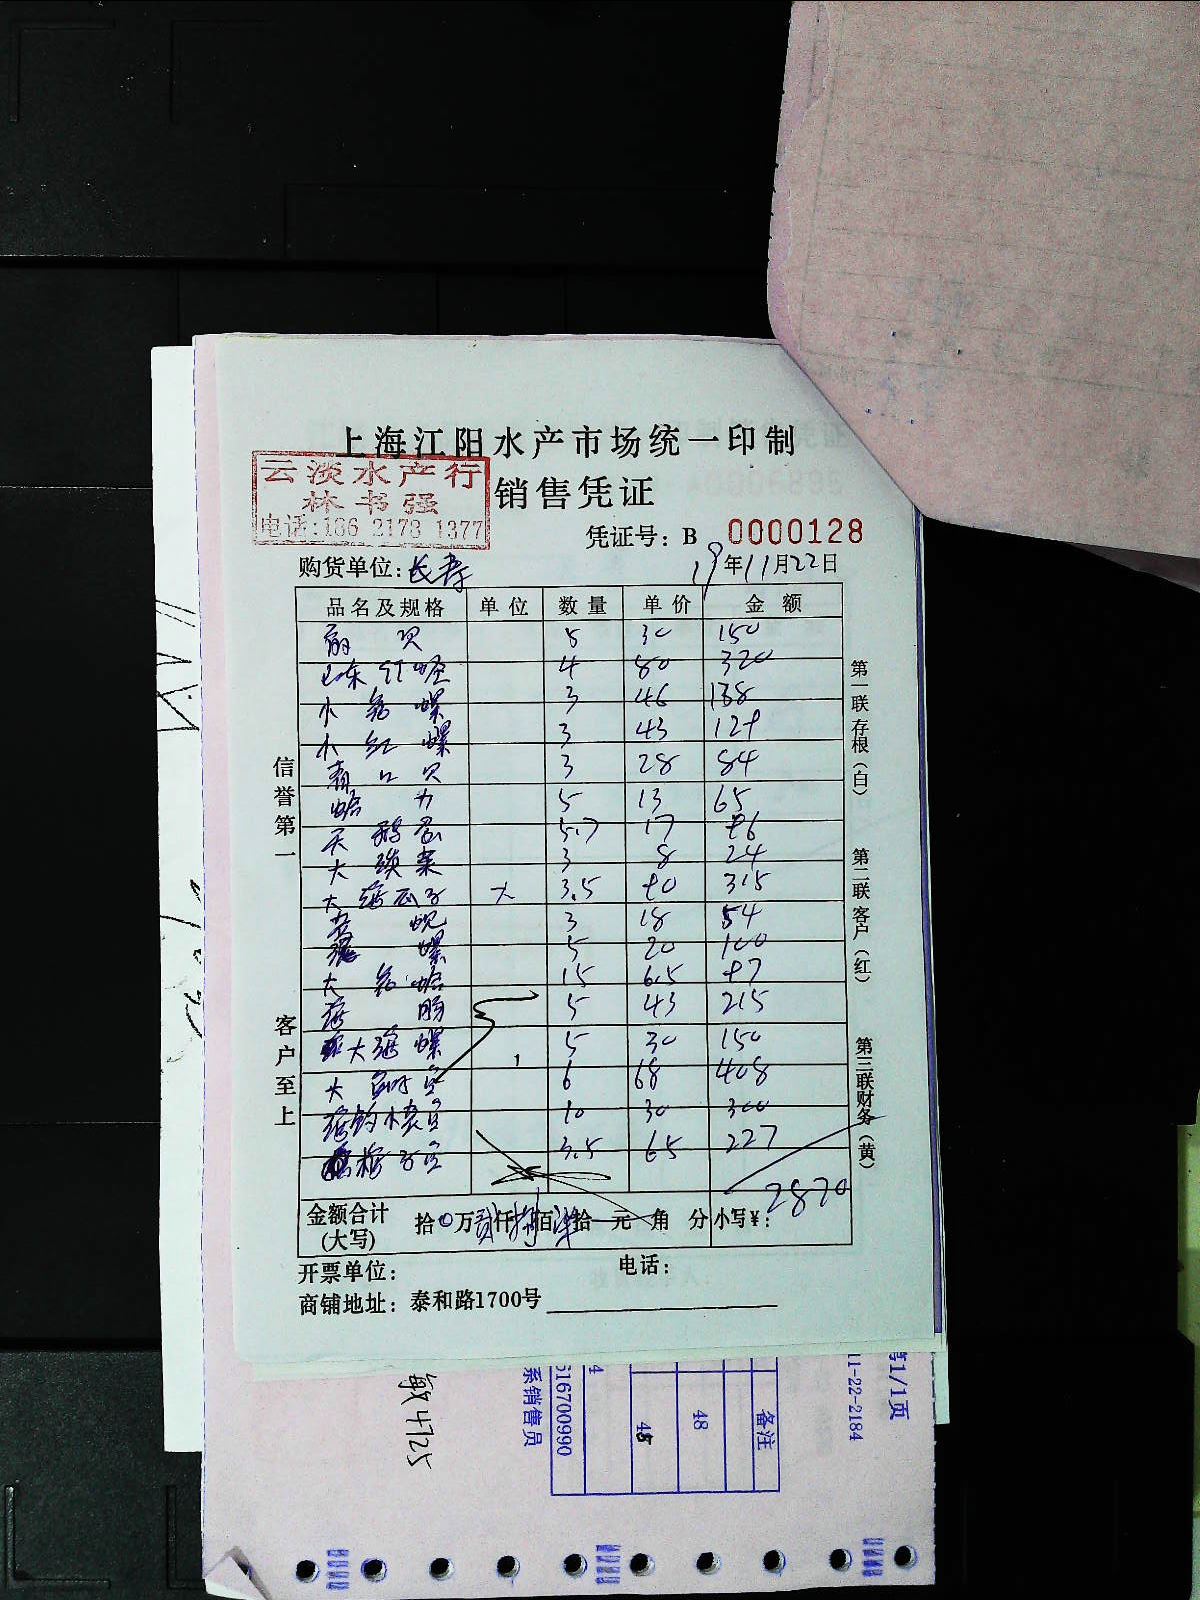 上海江阳水产市场统一印制
云淡水产行
林书强
电话:186 2178 1377
销售凭证
凭证号: B 0000128
购货单位: 长寿 19年11月22日
品名及规格 单位 数量 单价 金额
扇贝 5 30 150
山东红蛏 4 80 320
小花螺 3 46 138
小红螺 3 43 129
青口贝 3 28 84
蛤力 5 13 65
天鹅蛋 5.7 17 96
大淡菜 3 8 24
大海瓜子 大 3.5 90 315
黄蚬 3 18 54
螺 5 20 100
大花蛤 15 6.5 97
海肠 5 43 215
大海螺 5 30 150
大 6 68 408
10 30 300
3.5 65 227
金额合计(大写) 拾0万贰仟捌佰柒拾元角分 小写¥: 2870
开票单位: 电话:
商铺地址: 泰和路1700号
信誉第一
客户至上
第一联存根(白)
第二联客户(红)
第三联财务(黄)
第1/1页
11-22-2184
备注
48
48
4
516700990
系销售员
敏 4725